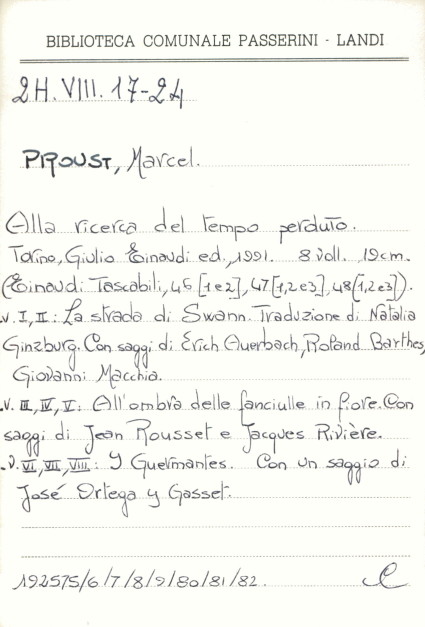 BIBLIOTECA COMUNALE PASSERINI - LANDI
2H.VIII.17-24
PROUST, Marcel.
Alla ricerca del tempo perduto.
Torino, Giulio Einaudi ed., 1991. 8 voll. 19cm.
(Einaudi Tascabili, 46 [1 e 2], 47 [1,2 e 3], 48 [1,2 e 3]).
v. I, II: La strada di Swann. Traduzione di Natalia
Ginzburg. Con saggi di Erich Auerbach, Roland Barthes,
Giovanni Macchia.
.V. III, IV, V: All'ombra delle fanciulle in fiore. Con
saggi di Jean Rousset e Jacques Rivière.
.V. VI, VII, VIII: I Guermantes. Con un saggio di
José Ortega y Gasset.
192575/6/7/8/9/80/81/82.